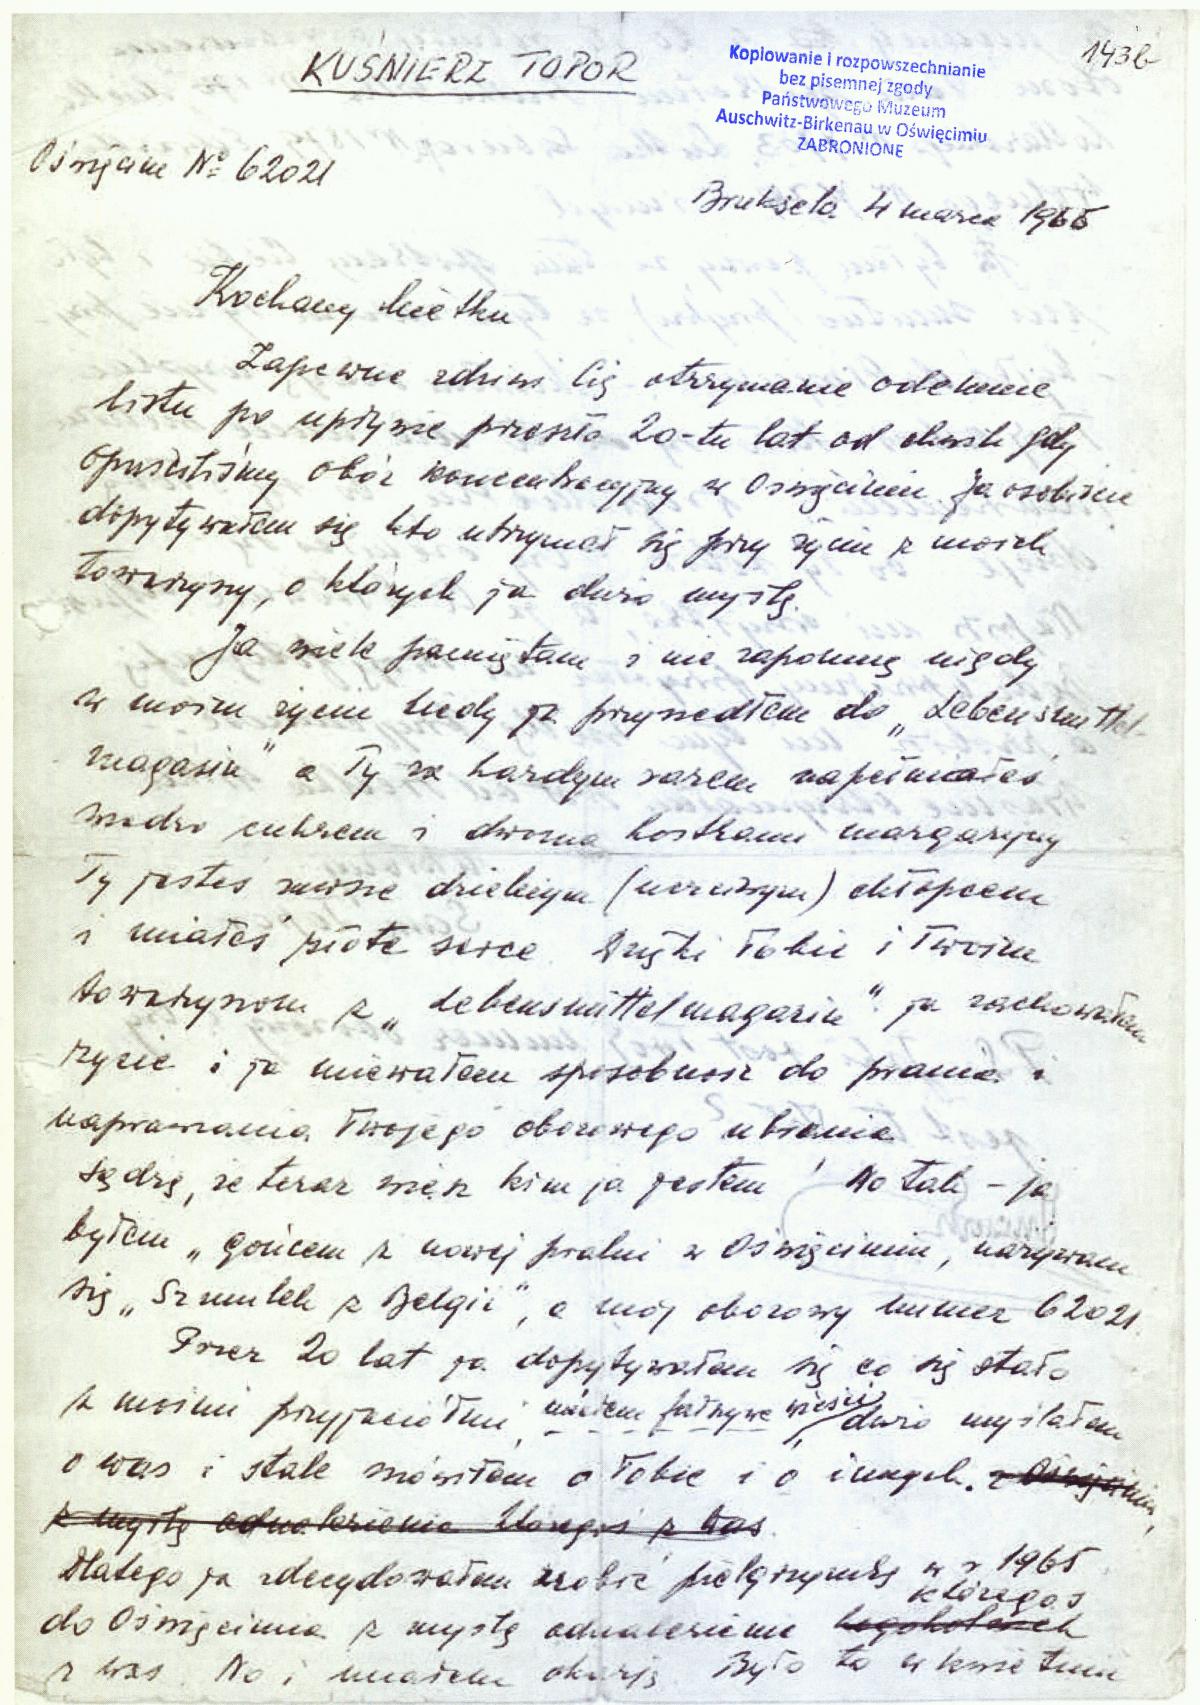 KUŚNIERZ TOPOR
143b
Kopiowanie i rozpowszechnianie
bez pisemnej zgody
Państwowego Muzeum
Auschwitz-Birkenau w Oświęcimiu
ZABRONIONE
Oświęcim Nº 62021
Bruksela 4 marca 1966
Kochany Mietku
Zapewne zdziwi Cię otrzymanie odemnie
listu po upływie przeszło 20-tu lat od chwili gdy
opuściliśmy obóz koncentracyjny w Oświęcimiu. Ja osobiście
dopytywałem się kto utrzymał się przy życiu z moich
towarzyszy, o których ja dużo myślę.
Ja wiele pamiętam i nie zapomnę nigdy
w moim życiu kiedy ja przyszedłem do „Lebensmittel-
magasin" a Ty za każdym razem napełniałeś
wiadro cukrem i dwoma kostkami margaryny
Ty jesteś zawsze dzielnym (uczciwym) chłopcem
i miałeś złote serce. Dzięki Tobie i Twoim
towarzyszom z „Lebensmittelmagazin" ja zachowałem
życie i ja miewałem sposobność do prania i
naprawiania Twojego obozowego ubrania
Sądzę, że teraz wiesz kim ja jestem! No tak – ja
byłem „gońcem z nowej pralni w Oświęcimiu, nazywam
się „Szmulek z Belgii", a mój obozowy numer 62021.
Przez 20 lat ja dopytywałem się co się stało
z moimi przyjaciółmi, miałem fałszywe wieści, dużo myślałem
o was i stale mówiłem o Tobie i o innych. z Oświęcimia,
z myślą odnalezienia któregoś z Was.
Dlatego ja zdecydowałem zrobić pielgrzymkę w r 1965
któregoś
do Oświęcimia z myślą odnalezienia kogokolwiek
z was. No i miałem okazję. Było to w kwietniu